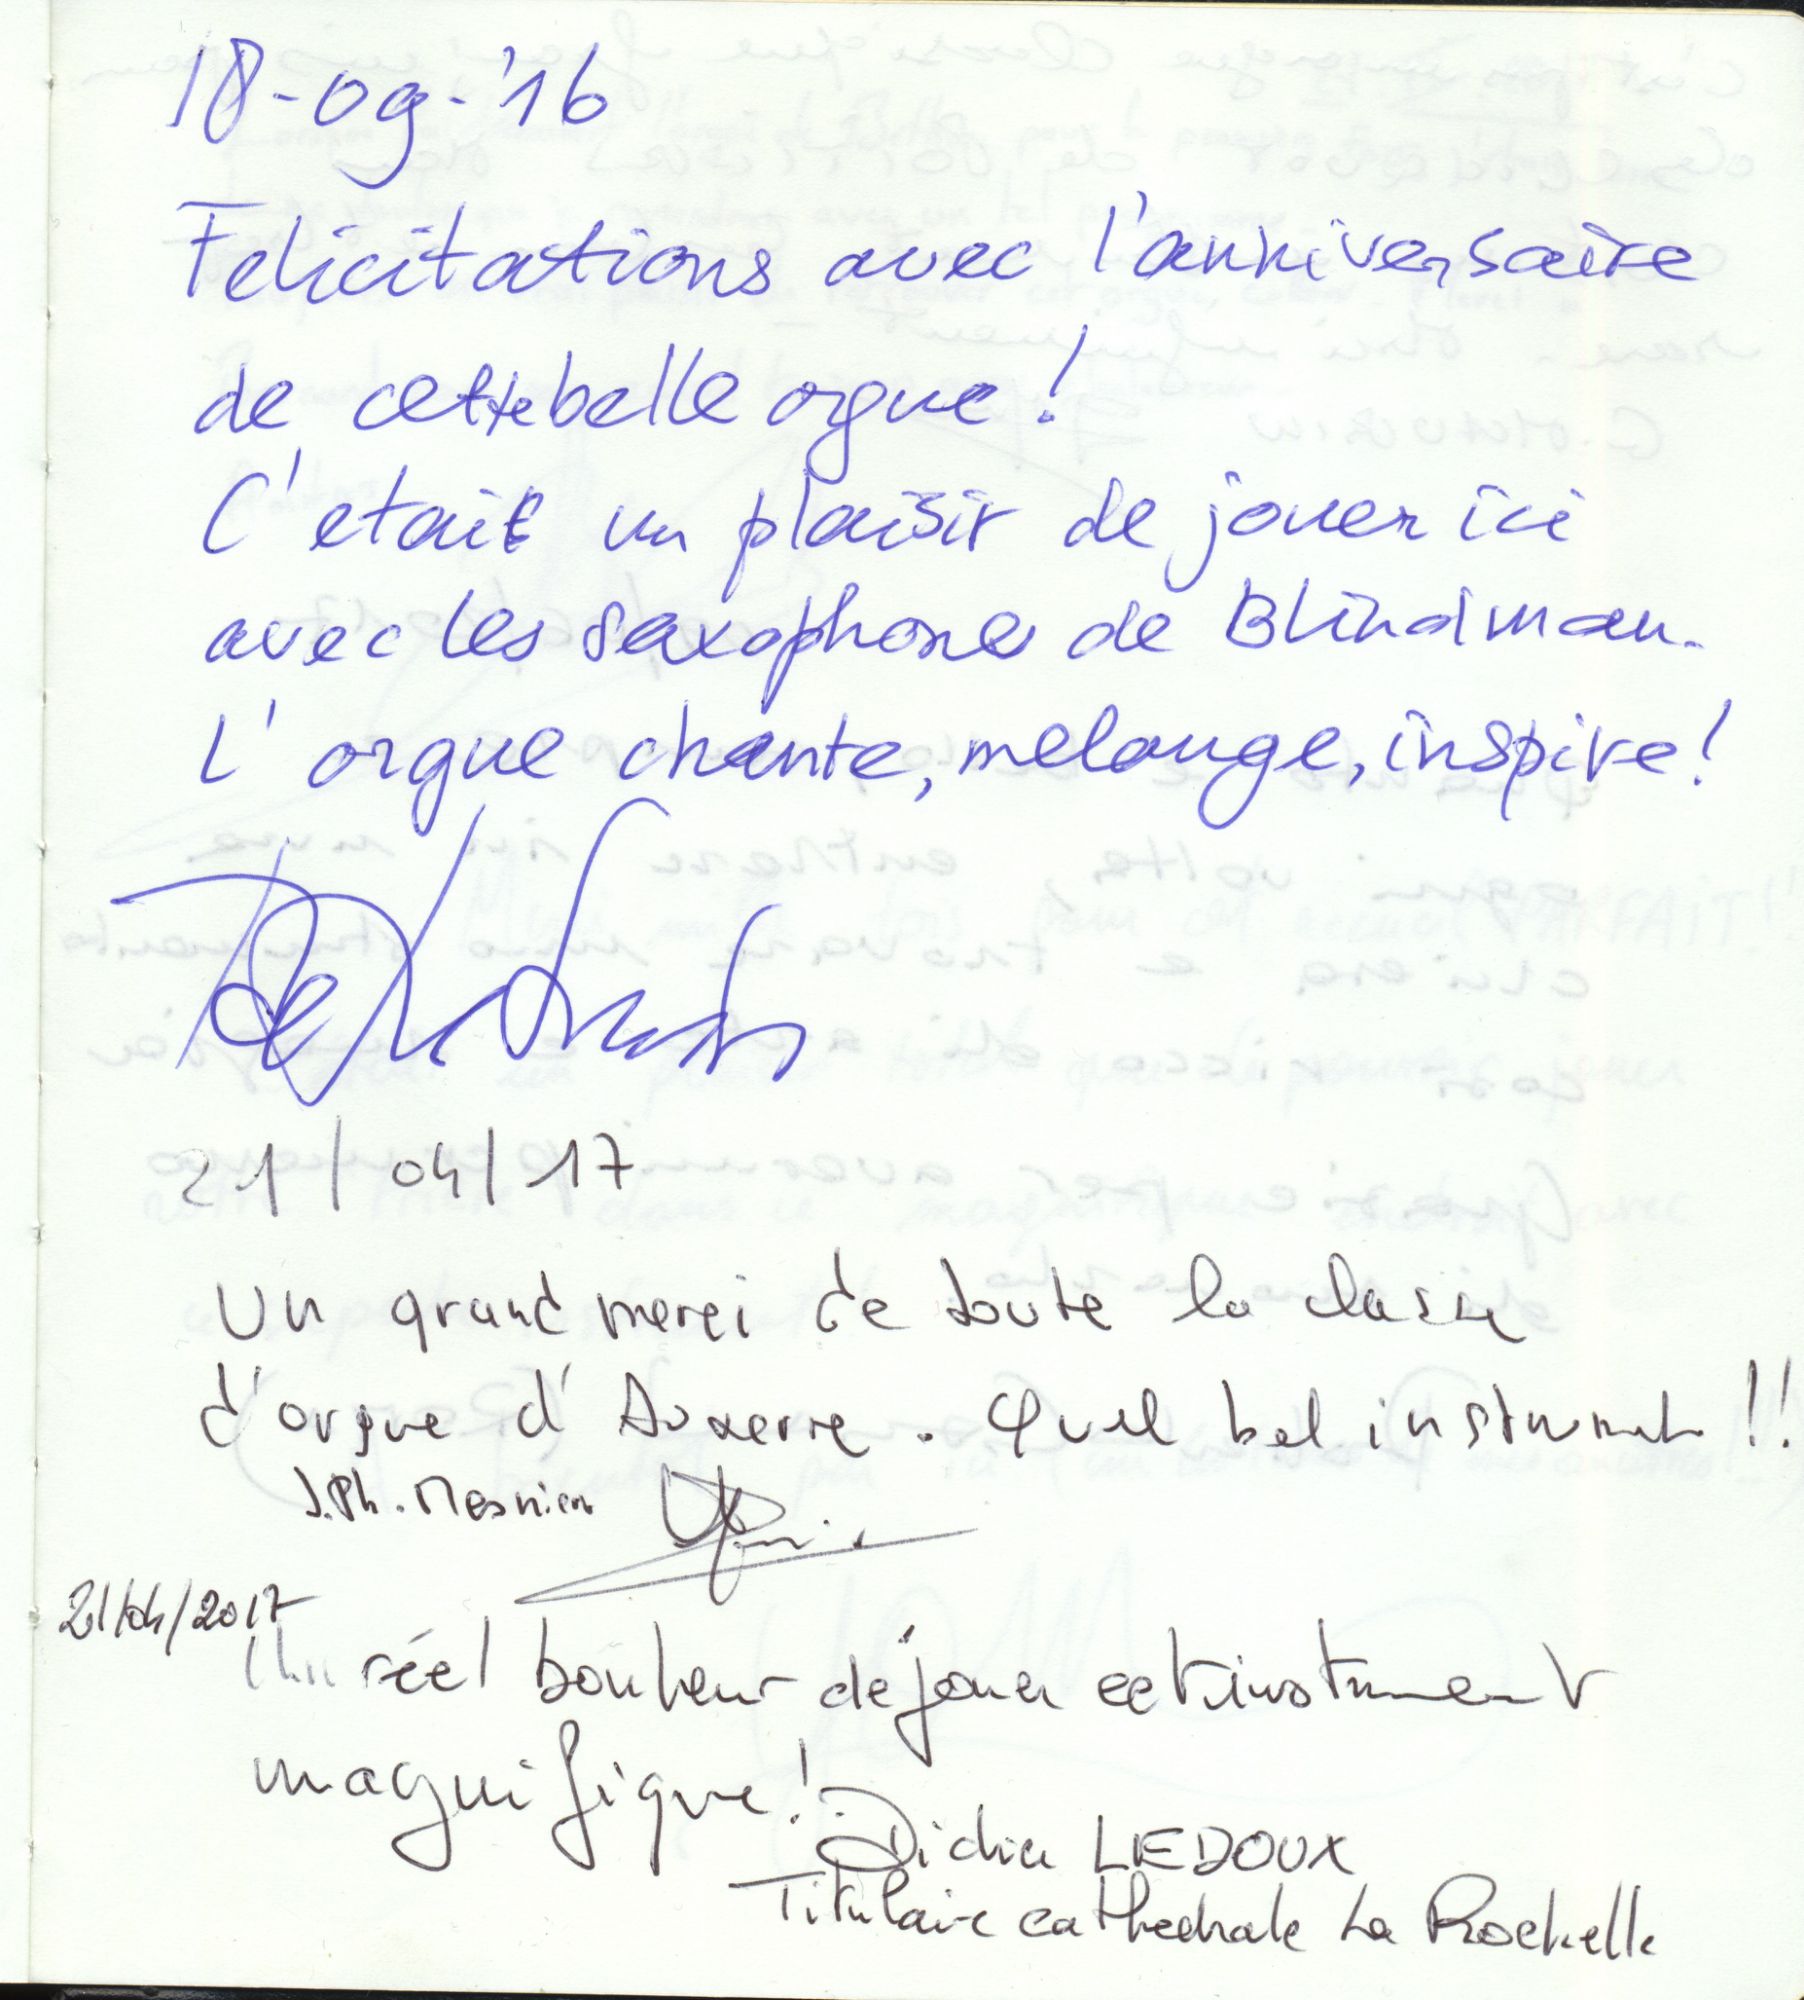 18-09-'16
Felicitations avec l'anniversaire
de cette belle orgue!
C'etait un plaisir de jouer ici
avec les saxophones de Blindman.
L'orgue chante, melange, inspire!
21/04/17
Un grand merci de toute la classe
d'orgue d'Auxerre. Quel bel instrument!!
J.Ph. Mesnier
21/04/2017
Un réel bonheur de jouer cet instrument
magnifique!
Didier LEDOUX
Titulaire cathedrale La Rochelle